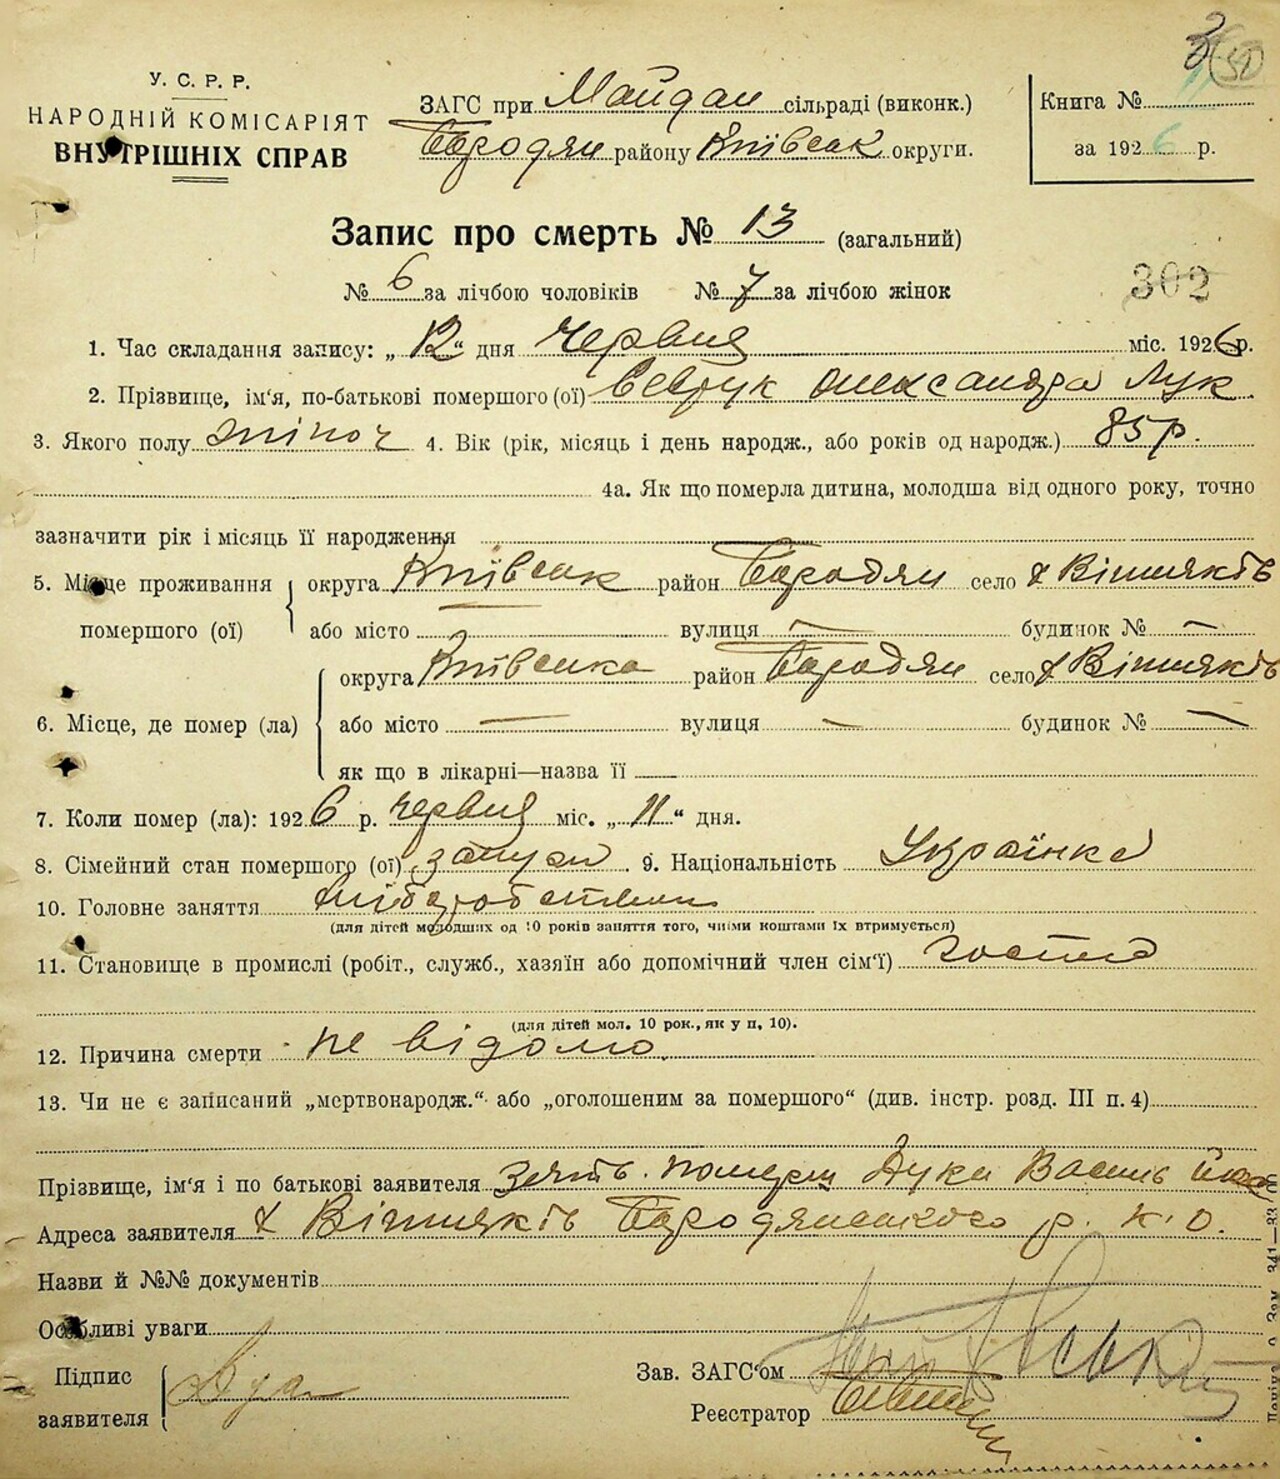 У. С. Р. Р.
НАРОДНІЙ КОМІСАРІЯТ
ВНУТРІШНІХ СПРАВ
ЗАГС при Майдан сільраді (виконк.)
Бородян району Київськ округи.
Книга №
за 1926 р.
Запис про смерть № 13 (загальний)
№ 6 за лічбою чоловіків № 7 за лічбою жінок
302
1. Час складання запису: „ 12 “ дня Червня міс. 1926 р.
2. Прізвище, ім‘я, по-батькові помершого (ої) Євтук Олександра Лук
3. Якого полу жіноч 4. Вік (рік, місяць і день народж., або років од народж.) 85 р.
4а. Як що померла дитина, молодша від одного року, точно
зазначити рік і місяць її народження
5. Місце проживання помершого (ої) округа Київськ район Бородян село х Вішняків
або місто — вулиця — будинок № —
6. Місце, де помер (ла) округа Київська район Бородян село х Вішняків
або місто — вулиця — будинок № —
як що в лікарні—назва її
7. Коли помер (ла): 1926 р. червня міс. „ 11 “ дня.
8. Сімейний стан помершого (ої) 9. Національність Українка
10. Головне заняття хліборобство
(для дітей молодших од 10 років заняття того, чиїми коштами їх втримується)
11. Становище в промислі (робіт., служб., хазяїн або допомічний член сім‘ї)
(для дітей мол. 10 рок., як у п. 10).
12. Причина смерти не відомо.
13. Чи не є записаний „мертвонародж.“ або „оголошеним за помершого“ (див. інстр. розд. III п. 4)
Прізвище, ім‘я і по батькові заявителя Зять Дука Василь
Адреса заявителя х Вішняків Бородянського р. К. О.
Назви й №№ документів
Особливі уваги
Підпис заявителя Дука
Зав. ЗАГС‘ом
Реєстратор